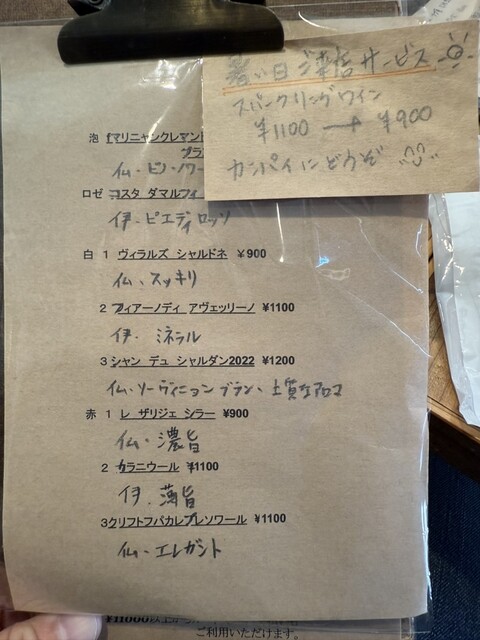 暑い日ご来店サービス
スパークリングワイン
¥1100 → ¥900
カンパイにどうぞ
泡 マリニャンクレマン
ブラ
仏・ピノ・ノワー
ロゼ コスタ ダマルフィ
伊・ピエディロッソ
白 1 ヴィラルズ シャルドネ ¥900
仏、スッキリ
2 フィアーノディ アヴェッリーノ ¥1100
伊、ミネラル
3 シャン デュ シャルダン2022 ¥1200
仏・ソーヴィニョンブラン、土質なアロマ
赤 1 レ ザリジェ シラー ¥900
仏・濃旨
2 カラニウール ¥1100
伊、薄旨
3 クリフトフパカレプレソワール ¥1100
仏・エレガント
¥11000以上
ご利用いただけます。